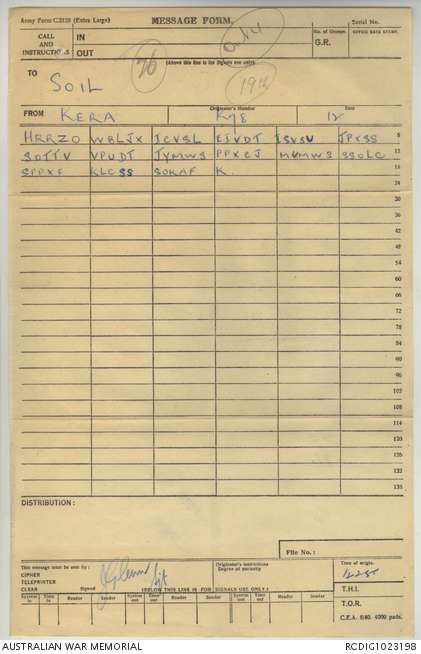 Army Form C.2128 (Extra Large)
MESSAGE FORM.
Serial No.
CALL AND INSTRUCTIONS
IN
OUT
No. of Groups.
G.R.
OFFICE DATE STAMP.
(Above this line is for Signals use only).
26
19th
TO
SOIL
FROM
Originator's Number
Date
KERA
12
HRRZO WBLJX JCVSL EIVDT ISVSV JPXSS 6
SOTTV VPUDT JYMWS PPXCJ MVMWS SSOLC 12
SPPXF KLCSS SORAF K. 18
24
30
36
42
48
54
60
66
72
78
84
90
96
102
108
114
120
126
132
138
DISTRIBUTION :
File No. :
This message must be sent by :
CIPHER
TELEPRINTER
CLEAR
Signed
Originator's Instructions
Degree of priority
Time of origin.
T.H.I.
(BELOW THIS LINE IS FOR SIGNALS USE ONLY.)
System in
Time in
Reader
Sender
System out
Time out
Reader
Sender
System out
Time out
Reader
Sender
T.O.R.
AUSTRALIAN WAR MEMORIAL
RCDIG1023198